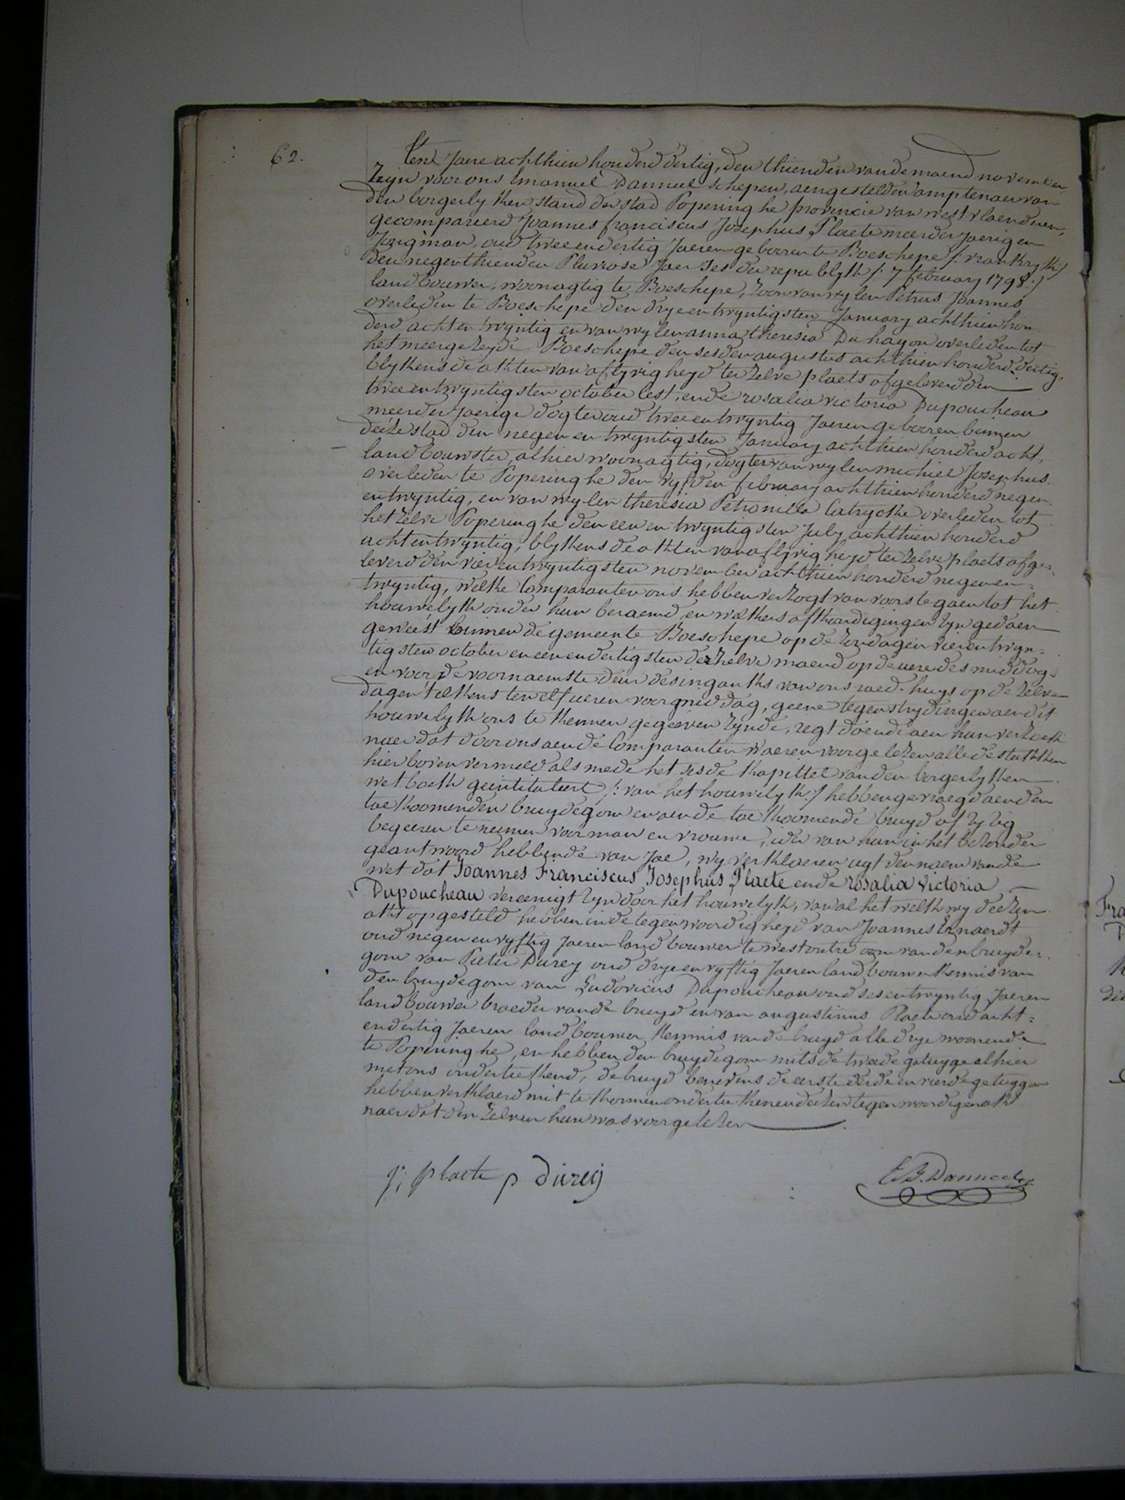 62.
Ten Jaere achthien honderd dertig, den thienden van de maend november
Zijn voor ons Emanuel Danneel schepen, aengestelden amptenaer van
den borgerlyken stand der stad Poperinghe provincie van westvlaenderen,
gecompareerd Joannes franciscus Josephus Plaete meerder jaerigen
Jongman, oud twee en dertig Jaeren gebooren te Boeschepe /: vrankryk :/
den negenthienden Pluviose Jaer ses der republyk /: 7 february 1798 :/
landbouwer, woonagtig te Boeschepe, zoon van wylen Petrus Joannes
overleden te Boeschepe den drye en twyntigsten January achthien hon-
derd acht en twyntig en van wylen anna theresia Du hayon overleden tot
het meergezeyde Boeschepe den sesden augustus achthien honderd dertig,
blykens de akten van aflyvigheyd ter zelve plaets afgeleverd den
twee en twyntigsten october lest, ende rosalia victoria Dupoucheau
meerder Jaerige dogter oud twee en twyntig Jaeren gebooren binnen
deeze stad den negen en twyntigsten January achthien honderd acht,
landbouwster, alhier woonagtig, dogter van wylen michiel Josephus
overleden te Poperinghe den vyfden february achthien honderd negen
en twyntig, en van wylen theresia Petronilla overleden tot
het zelve Poperinghe den een en twyntigsten July achthien honderd
acht en twyntig, blykens de akten van aflyvigheyd ter zelve plaets afge-
leverd den vier en twyntigsten november achthien honderd negen en
twyntig, welke Comparanten ons hebben verzogt van voorts te gaen tot het
houwelyk onder hun beraemd, en welkers afkondigingen zyn gedaen
geweest binnen de gemeente Boeschepe op de zondagen vier en twyn-
tigsten october en een en dertigsten der zelve maend op de uere des middags
en voor de voornaemste deur des ingangks van ons raed-huys op de zelve
dagen telkens ten elf ueren voormiddag, geene tegenstrydingen aen dit
houwelyk ons te kennen gegeeven zynde, regt doende aen hun verzoek
naer dat door ons aen de Comparanten waeren voorgelezen alle de stukken
hier boven vermeld als mede het sesde kapittel van den borgerlyken
wetboek geintituleert /: van het houwelyk :/ hebben gevraegd aen den
toekoomenden bruydegom en aen de toekoomende bruyd of zy
begeeren te nemen voor man en vrouwe, ider van hun in het bezonder
geantwoord hebbende van Jae, wy verklaeren uyt den naem van de
wet dat Joannes Franciscus Josephus Plaete ende rosalia victoria
Dupoucheau vereenigt zyn door het houwelyk, van al het welk wy deezen
akt opgesteld hebben in de tegenwoordigheyd van Joannes
oud negen en vyftig Jaeren landbouwer te westoutre oom van den bruyde-
gom van Pieter Durey oud drye en vyftig Jaeren landbouwer kennis van
den bruydegom van Ludovicus Dupoucheau oud ses en twyntig Jaeren
landbouwer broeder van de bruyd en van augustinus Plaete oud acht-
en dertig Jaeren landbouwer kennis van de bruyd alle drye woonende
te Poperinghe, en hebben den bruydegom mits de tweede getuyge alhier
met ons onderteekend, de bruyd benevens de eerste derde en vierde getuygen
hebben verklaerd niet te konnen onderteekenen deezen tegenwoordigen akt
naer dat den zelven hun was voorgelezen
j: plaete p durey
E B. Danneel